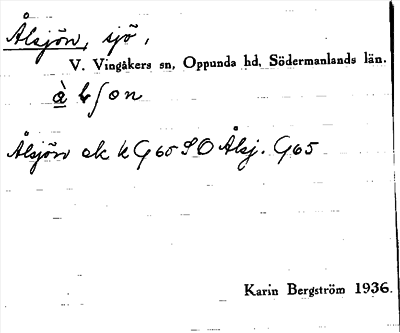 Ålsjön, sjö,
V. Vingåkers sn, Oppunda hd, Södermanlands län.
Ålsjön ek k G 65 SO Ålsj. G65
Karin Bergström 1936.